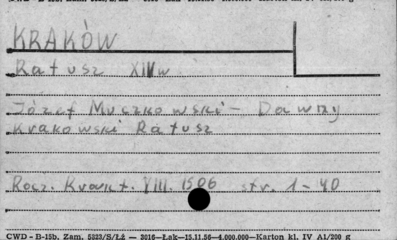 KRAKÓW
Ratusz XIV w
Józef Muczkowski - Dawny
Krakowski Ratusz
Rocz. Krak. t. VIII. 1906 str. 1-40
CWD - B-15b. Zam. 5323/S/Łż — 3016—Łak—15.11.56—4.000.000—Karton kl. IV A1/200 g